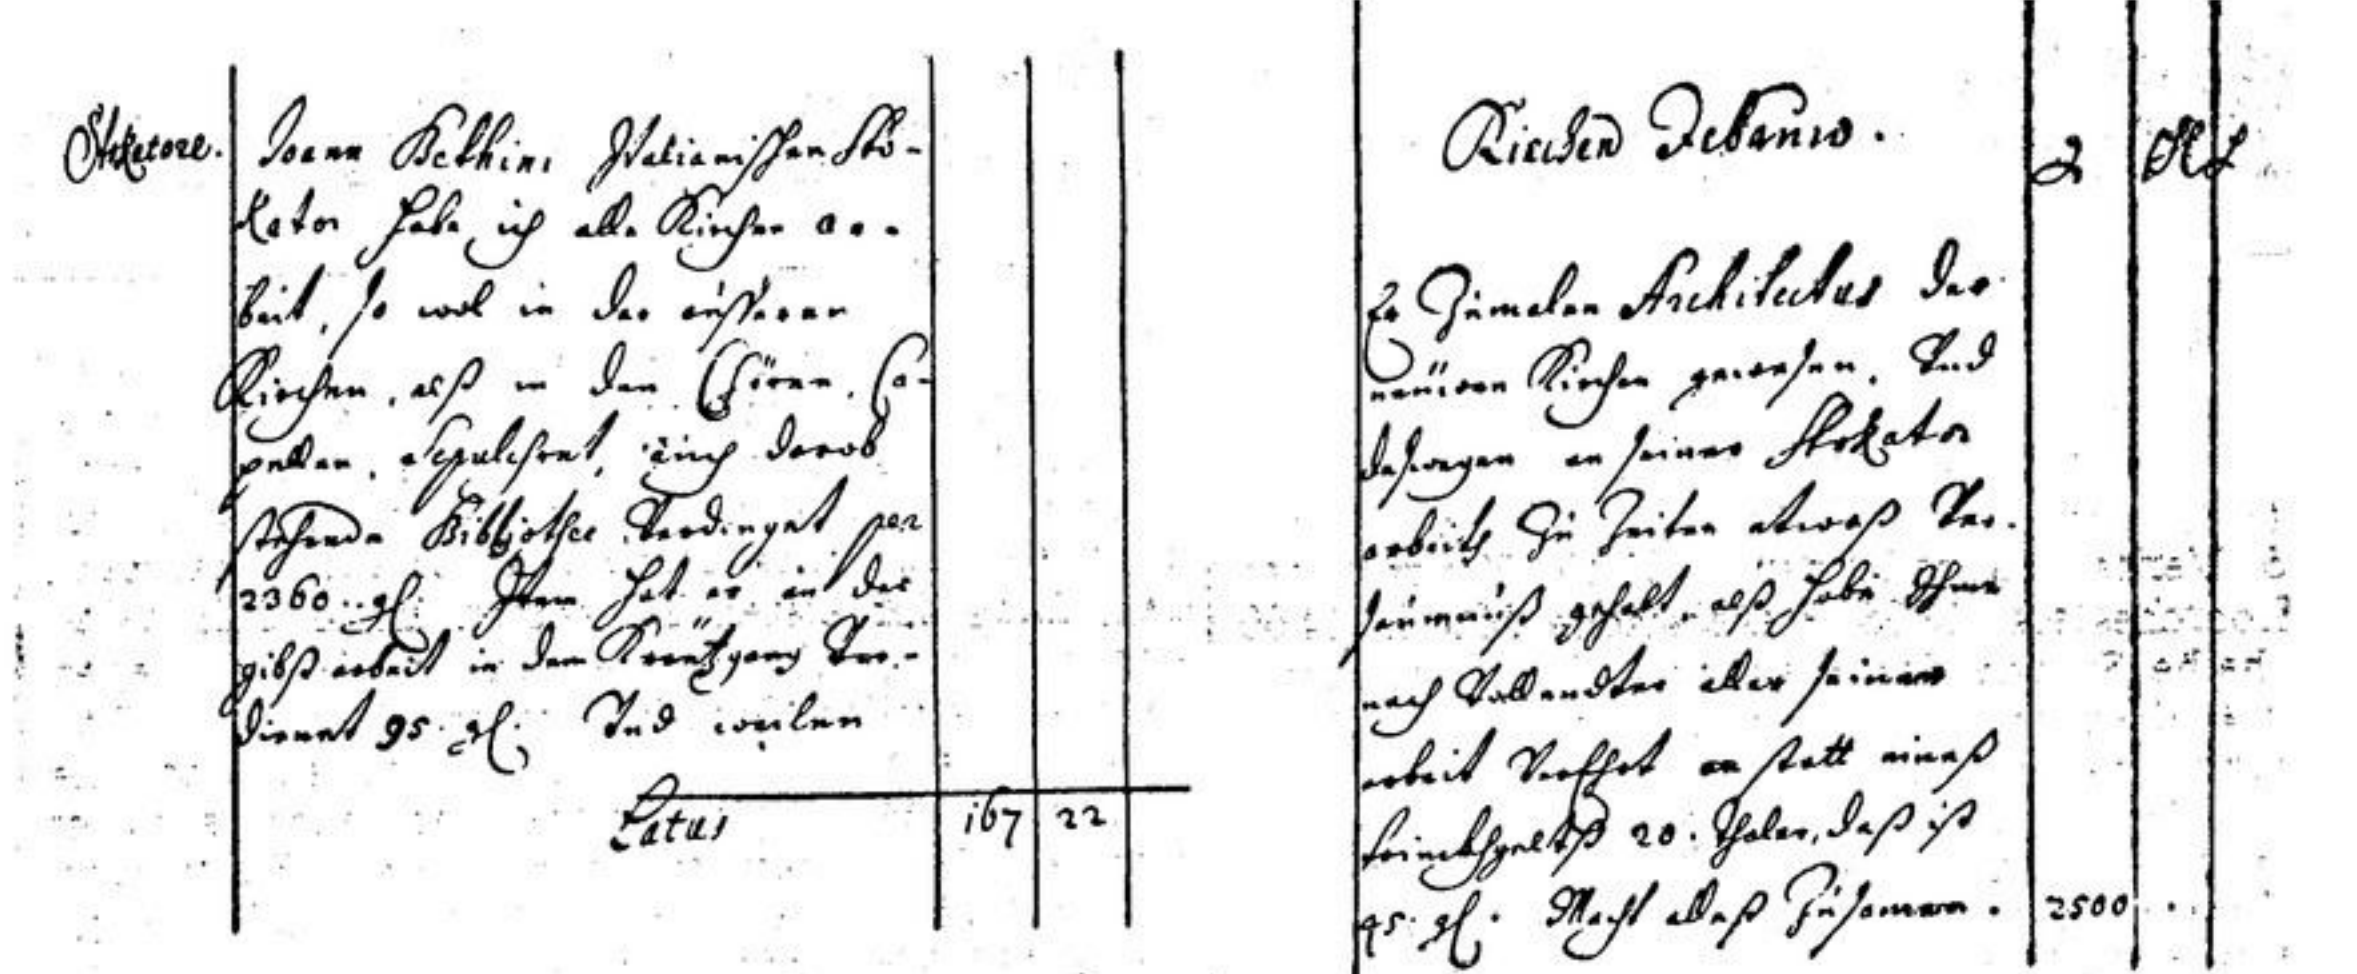 Stokatore.
Joann Bethini Italianischen Sto-
kator habe ich alle Kirchen ar-
beit, so wol in der eüsseren
Kirchen, alß in den Chören, Ca-
pellen, Sepulchret, auch darob
stehende Bibliothec Verdinget per
2360.. gl. Item hat er an der
gibß arbeit in dem Kreützgang Ver-
dienet 95. gl. Vnd weilen
Latus 167 22
Kirchen Gebäuw.
Er Zumalen Architectus der
neüwen Kirchen gewesen, Vnd
deswegen an seiner Stokator
arbeith Zu Zeiten etwaß Ver-
saumnuß gehabt, alß habe Ihme
nach Vollendter aller seiner
arbeit Verehrt an statt eineß
trinckhgeltß 20. Thaler, daß ist
45. gl. Macht alleß Zusammen. 2500 .